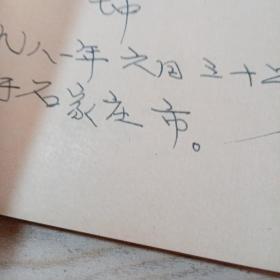 坤
九八一年六月三十
于石家庄市。